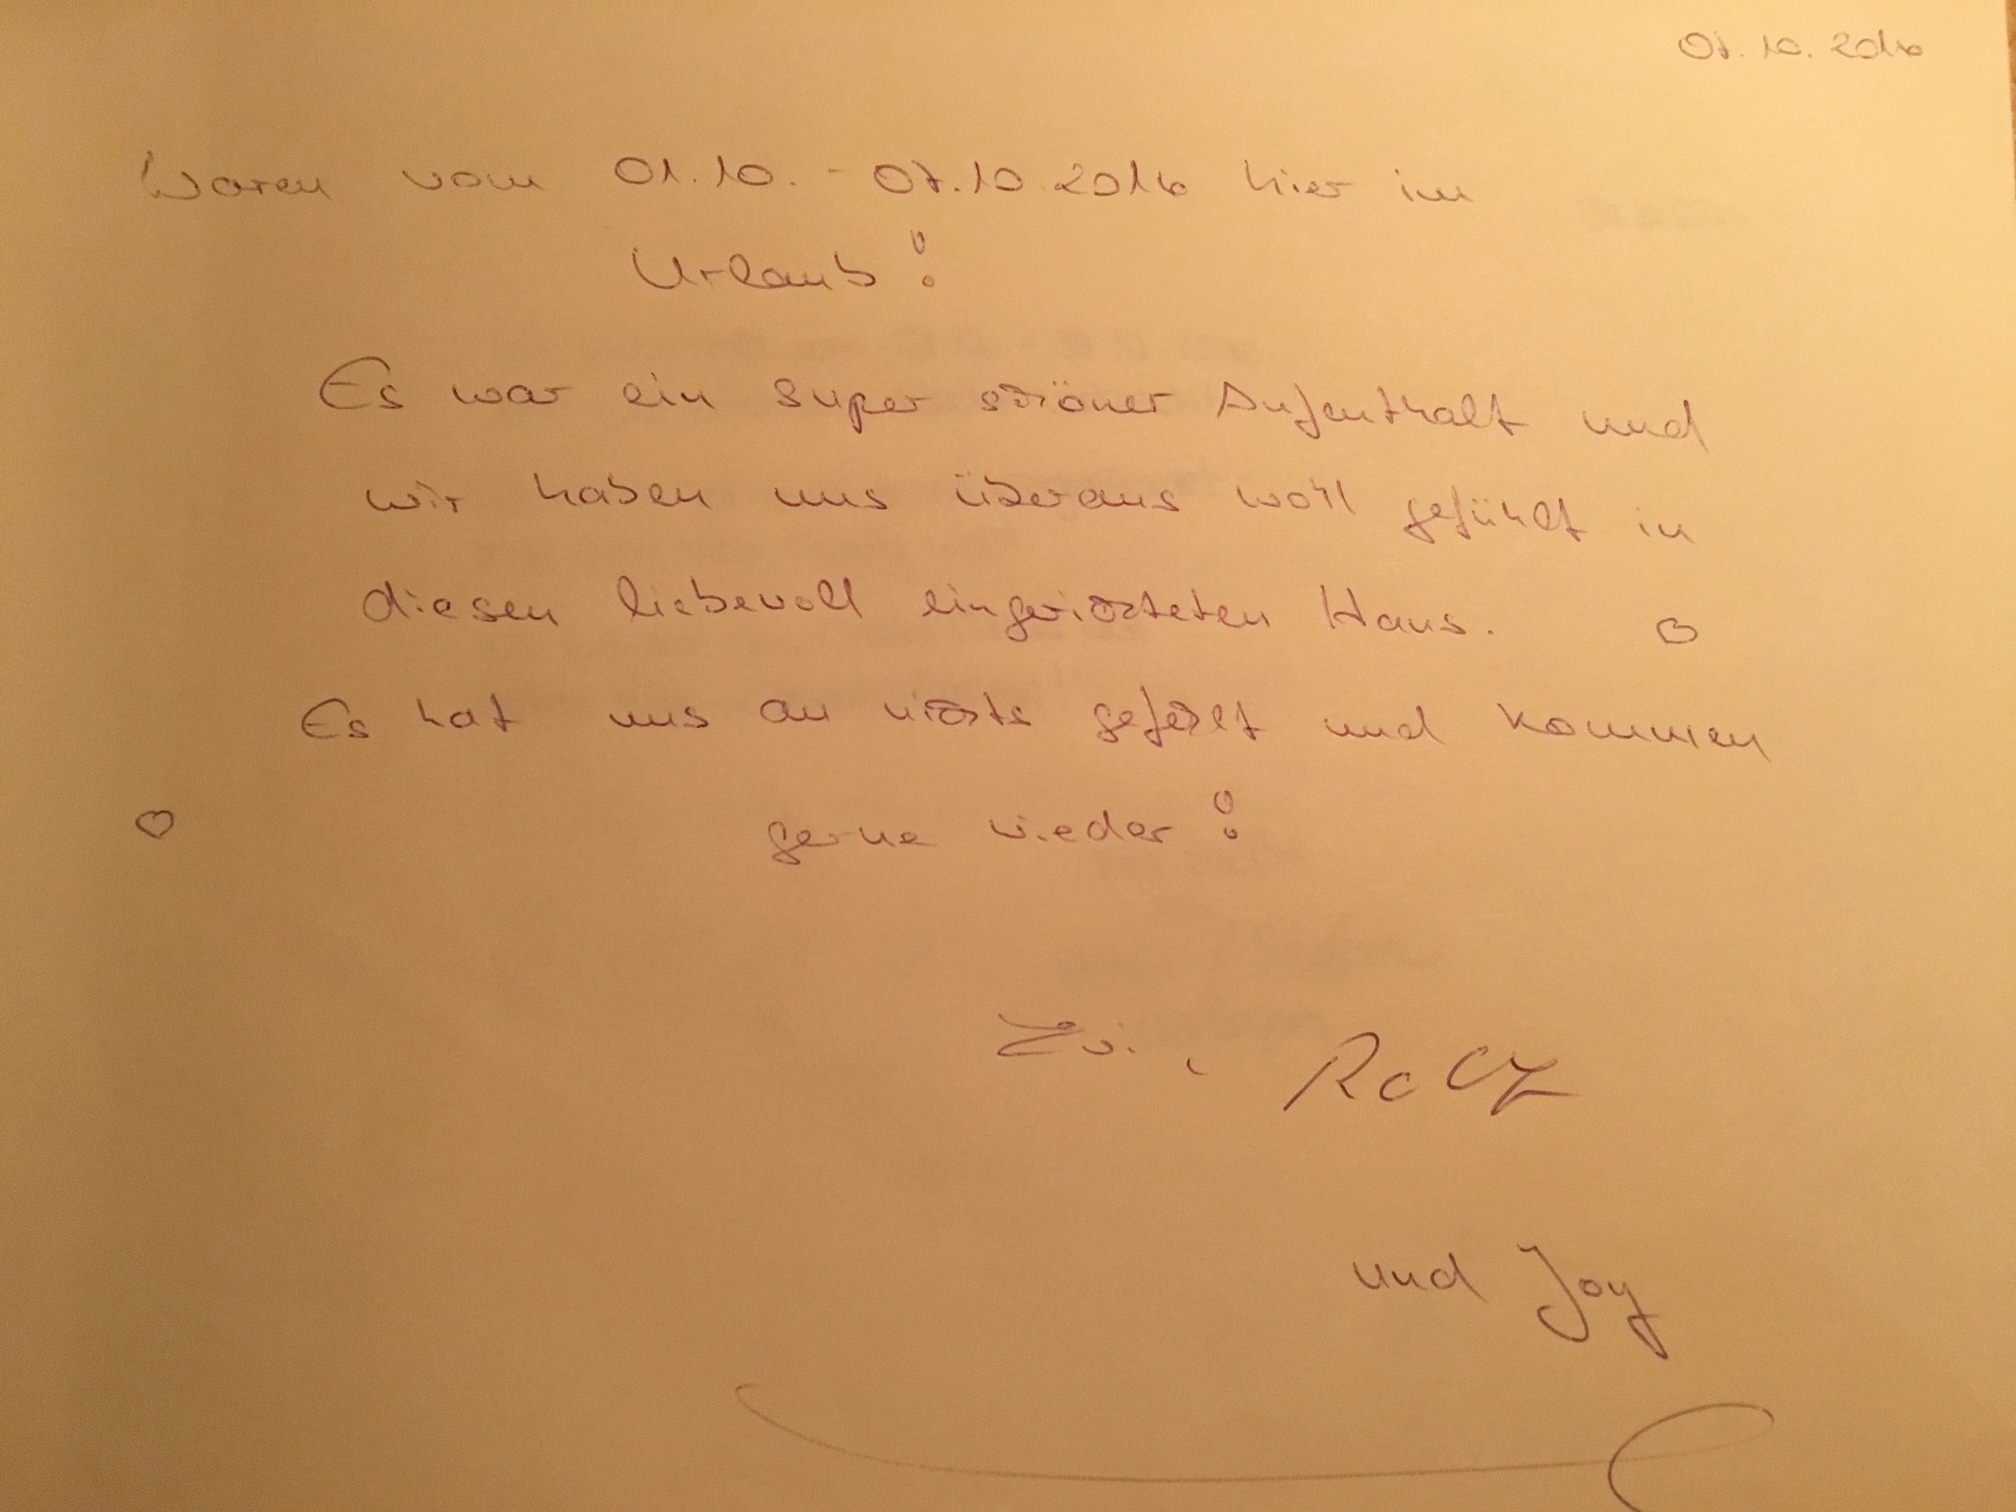 07.10.2016
Waren vom 01.10. - 07.10.2016 hier im
Urlaub!
Es war ein super schöner Aufenthalt und
wir haben uns überaus wohl gefühlt in
diesen liebevoll eingerichteten Haus. ♡
Es hat uns an nichts gefehlt und kommen
♡ gerne wieder!
Evi, Ralf
und Joy